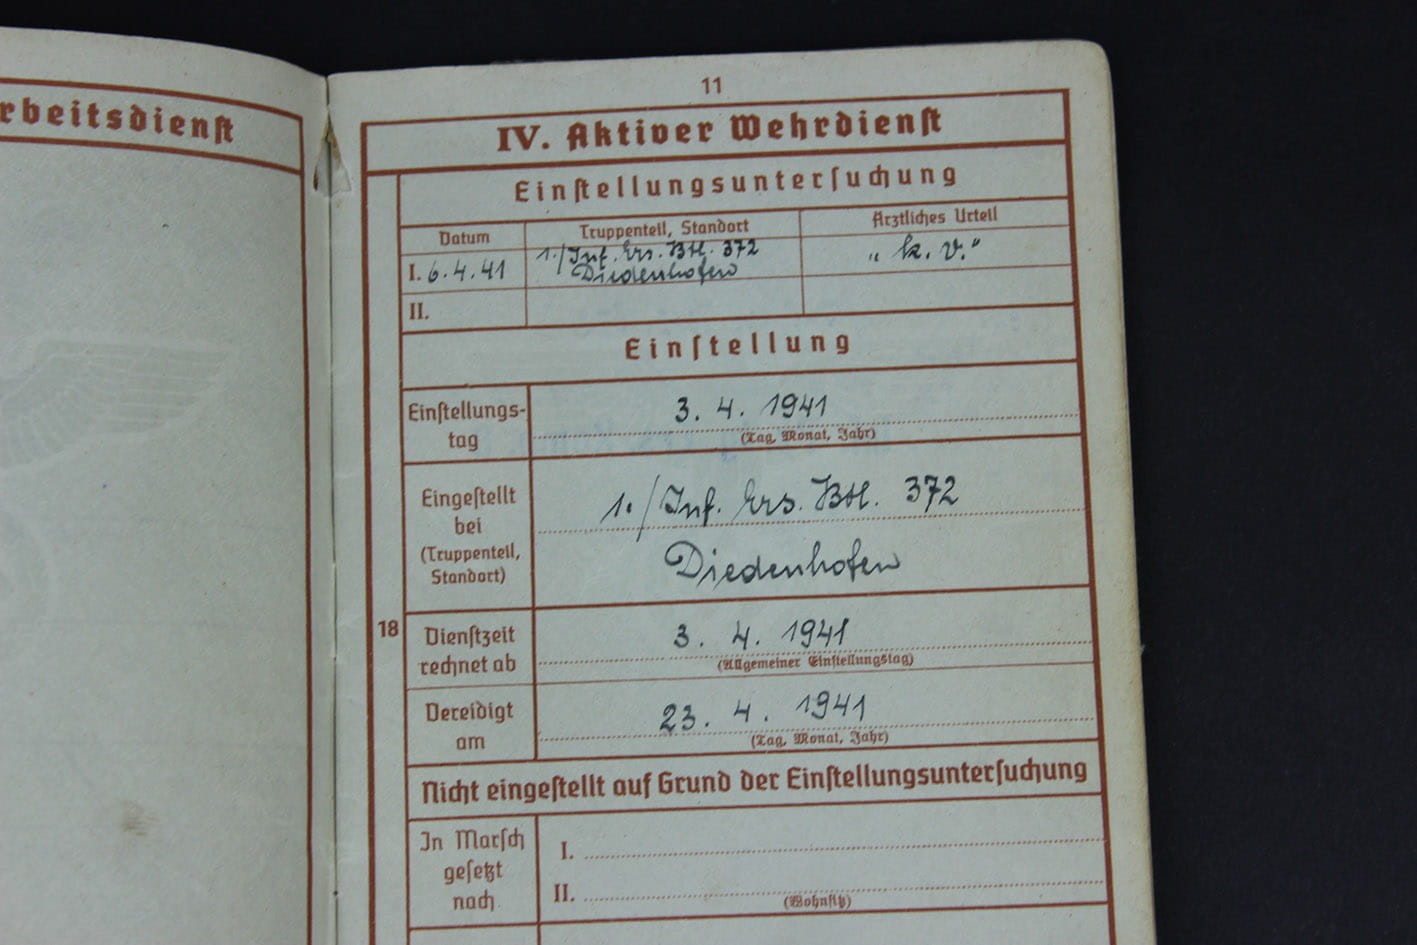 rbeitsdienst
11
IV. Aktiver Wehrdienst
Einstellungsuntersuchung
Datum Truppenteil, Standort Ärztliches Urteil
I. 6.4.41 1./Inf. Ers. Btl. 372 „k. v."
Diedenhofen
II.
Einstellung
Einstellungs-
tag
3. 4. 1941
(Tag, Monat, Jahr)
Eingestellt
bei
(Truppenteil,
Standort)
1./Inf. Ers. Btl. 372
Diedenhofen
18
Dienstzeit
rechnet ab
3. 4. 1941
(Allgemeiner Einstellungstag)
Vereidigt
am
23. 4. 1941
(Tag, Monat, Jahr)
Nicht eingestellt auf Grund der Einstellungsuntersuchung
In Marsch
gesetzt
nach
I.
II.
(Wohnsitz)